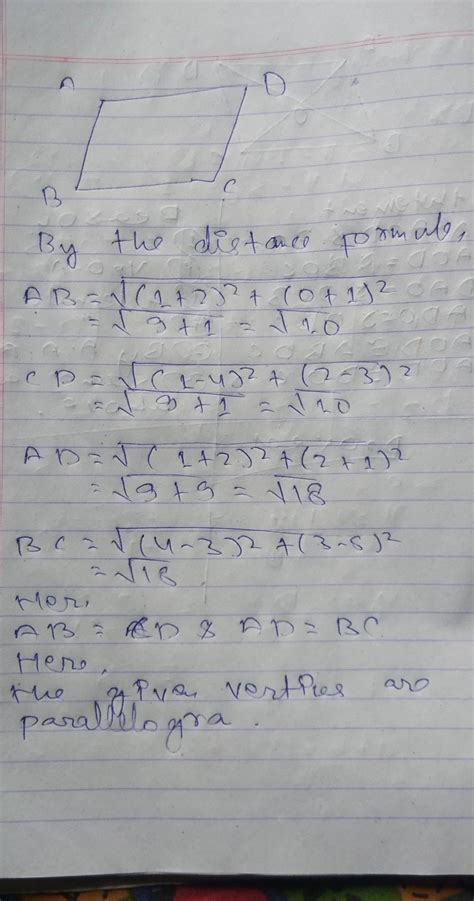 A D
B C
By the distance formula,
AB = √(1+2)² + (0+1)²
= √9+1 = √10
CD = √(1-4)² + (2-3)²
= √9+1 = √10
AD = √(1+2)² + (2+1)²
= √9+9 = √18
BC = √(4-3)² + (3-6)²
= √18
Her,
AB = CD & AD = BC
Here,
the given verties are
parallelogra.